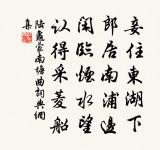 妾住東湖下
郎居南浦邊
閑臨煙水望
認得采菱船
陸龜蒙南塘曲詞典網
集